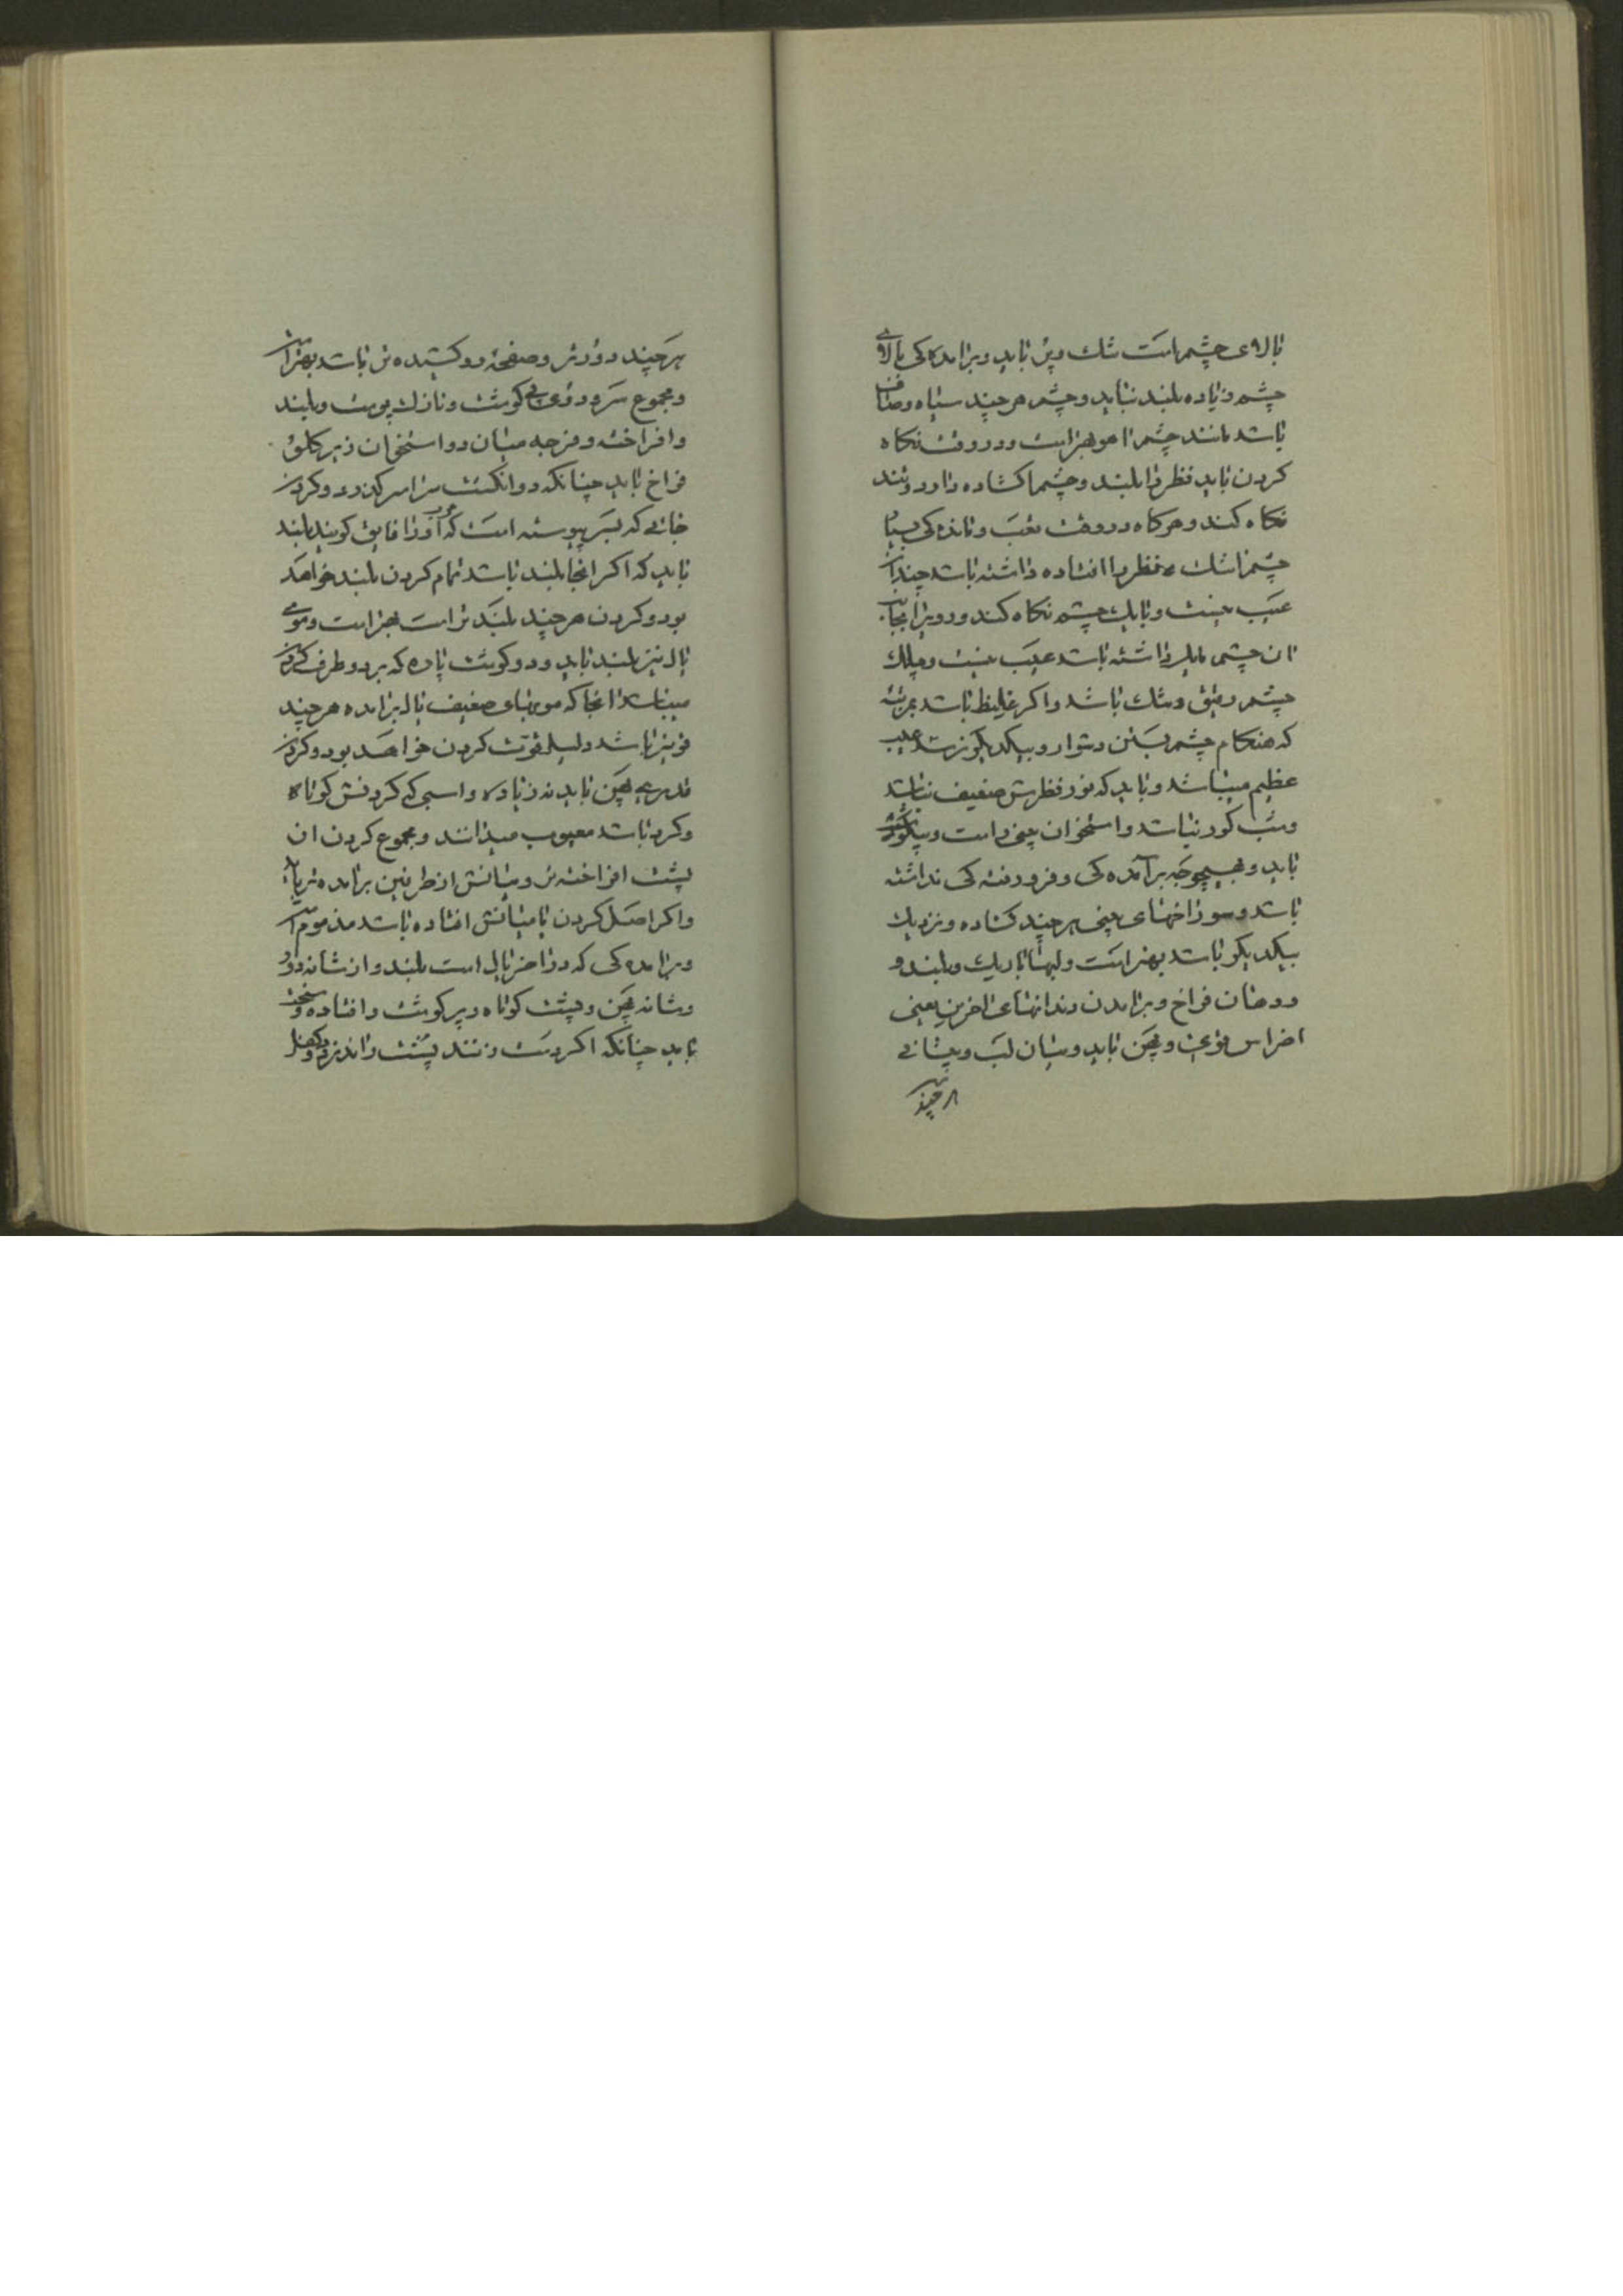 بالای چشم است تنک و پر باید و برامده کی بالای
چشم زیاده بلند نباید و چشم هر چند سیاه و صاف
باشد مانند چشم اهو بهتر است و در وقت نکاه
کردن باید نظر را بلند و چشم را کشاده دارد و تند
نکاه کند و هرکاه در وقت تعب و مانده کی بسیار
چشم را تنک و نظر را افتاده داشته باشد چندان
عیب نیست و با یک چشم نکاه کند و رو بر
ان چشم مایل داشته باشد عیب نیست و پلک
چشم رقیق و تنک باشد و اکر غلیظ باشد بمرتبه
که هنکام چشم بستن دشوار و بیکدیکر نرسد عیب
عظیم میباشد و باید که نور نظرش ضعیف نباشد
و شب کور نباشد و استخوان بینی راست و
باید و بهیچوجه برآمده کی و فرو رفته کی نداشته
باشد و سوراخهای بینی هر چند کشاده و نزدیک
بیکدیکر باشد بهتر است و لبها باریک و بلند و
و دهان فراخ و برامدن دندانهای اخرین یعنی
اضراس قوی و پهن باید و میان لب و پیشانی
هر چند
هر چند دورتر و صفحه رو کشیده تر باشد بهتر است
و مجموع سر و روی بی کوشت و نازک پوست و بلند
و افراخته و فرجه میان دو استخوان زیر کلو
فراخ باید چنانکه دو انکشت سراسر کذرد و کردن
جائی که بسر پیوسته است که عرب آنرا فایق کویند بلند
باید که اکر انجا بلند باشد تمام کردن بلند خواهد
بود و کردن هر چند بلند تر است بهتر است و موی
یال نیز بلند باید و دو کوشت پاره که بر دو طرف کردن
میباشد از انجا که مویهای ضعیف یال برامده هر چند
قوی تر باشد دلیل قوت کردن خواهد بود و کردن
قدری پهن باید نه زیاده و اسبی که کردنش کوتاه
و کرد باشد معیوب میدانند و مجموع کردن ان
پشت افراخته تر و میانش از طرفین برامده تر باید
و اکر اصل کردن یا میانش افتاده باشد مذموم است
و برامده کی که در اخر یال است بلند و از شانه دور
و شانه پهن و پشت کوتاه و پر کوشت و افتاده و سخت
باید چنانکه اکر دست زنند پشت را ندزدد و